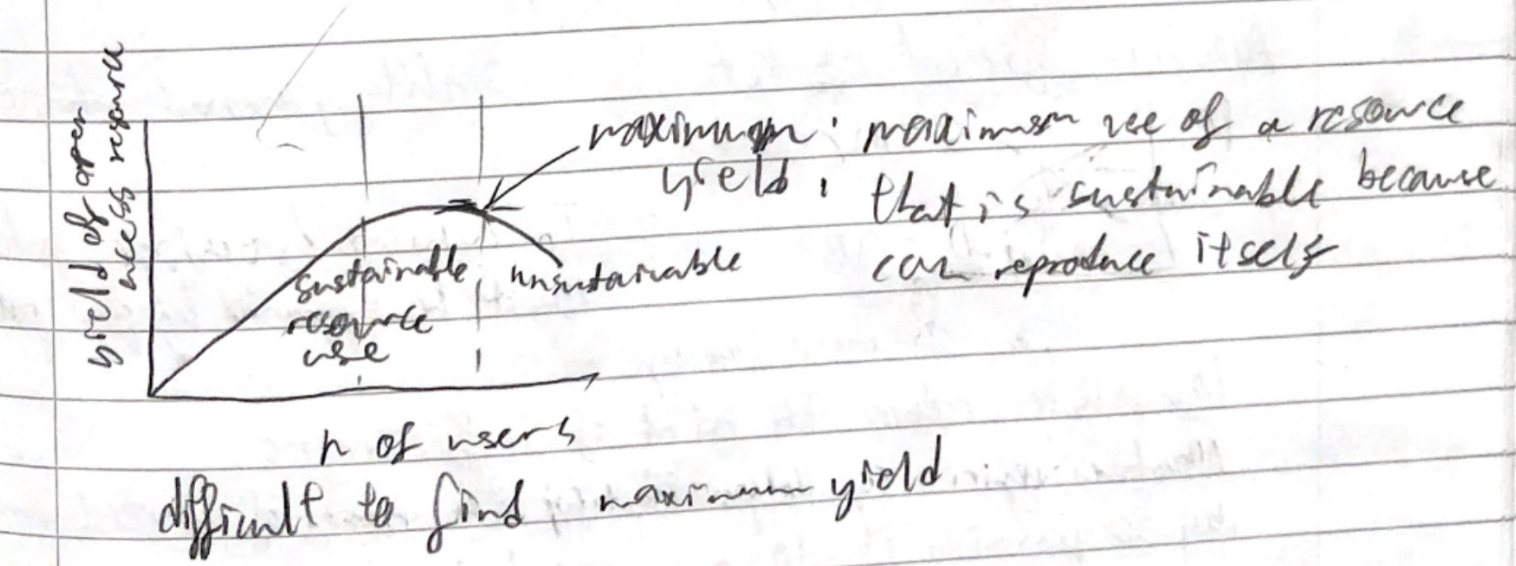 yield of open
access resource
maximum : maximum use of a resource
yield : that is sustainable because
can reproduce itself
sustainable
resource
use
unsustainable
n of users
difficult to find maximum yield